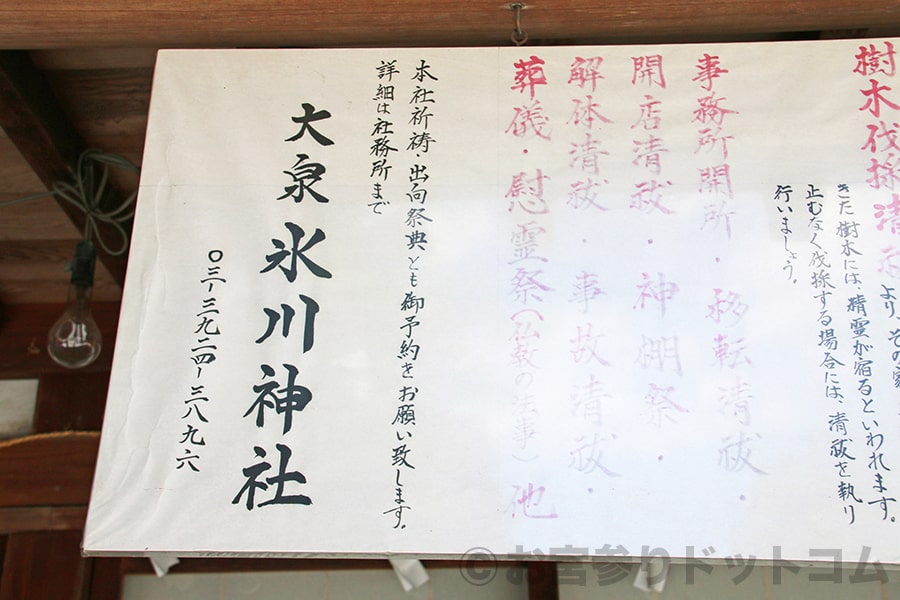 樹木伐採清示
より、その家
きた樹木には、精霊が宿るといわれます。
止むなく伐採する場合には、清祓を執り
行いましょう。
事務所開所・移転清祓・
開店清祓・神棚祭・
解体清祓・事故清祓・
葬儀・慰霊祭(仏教の法事)他
本社祈祷・出向祭典とも御予約をお願い致します。
詳細は社務所まで
大泉氷川神社
〇三-三九二四-三八九六
©お宮参りドットコム